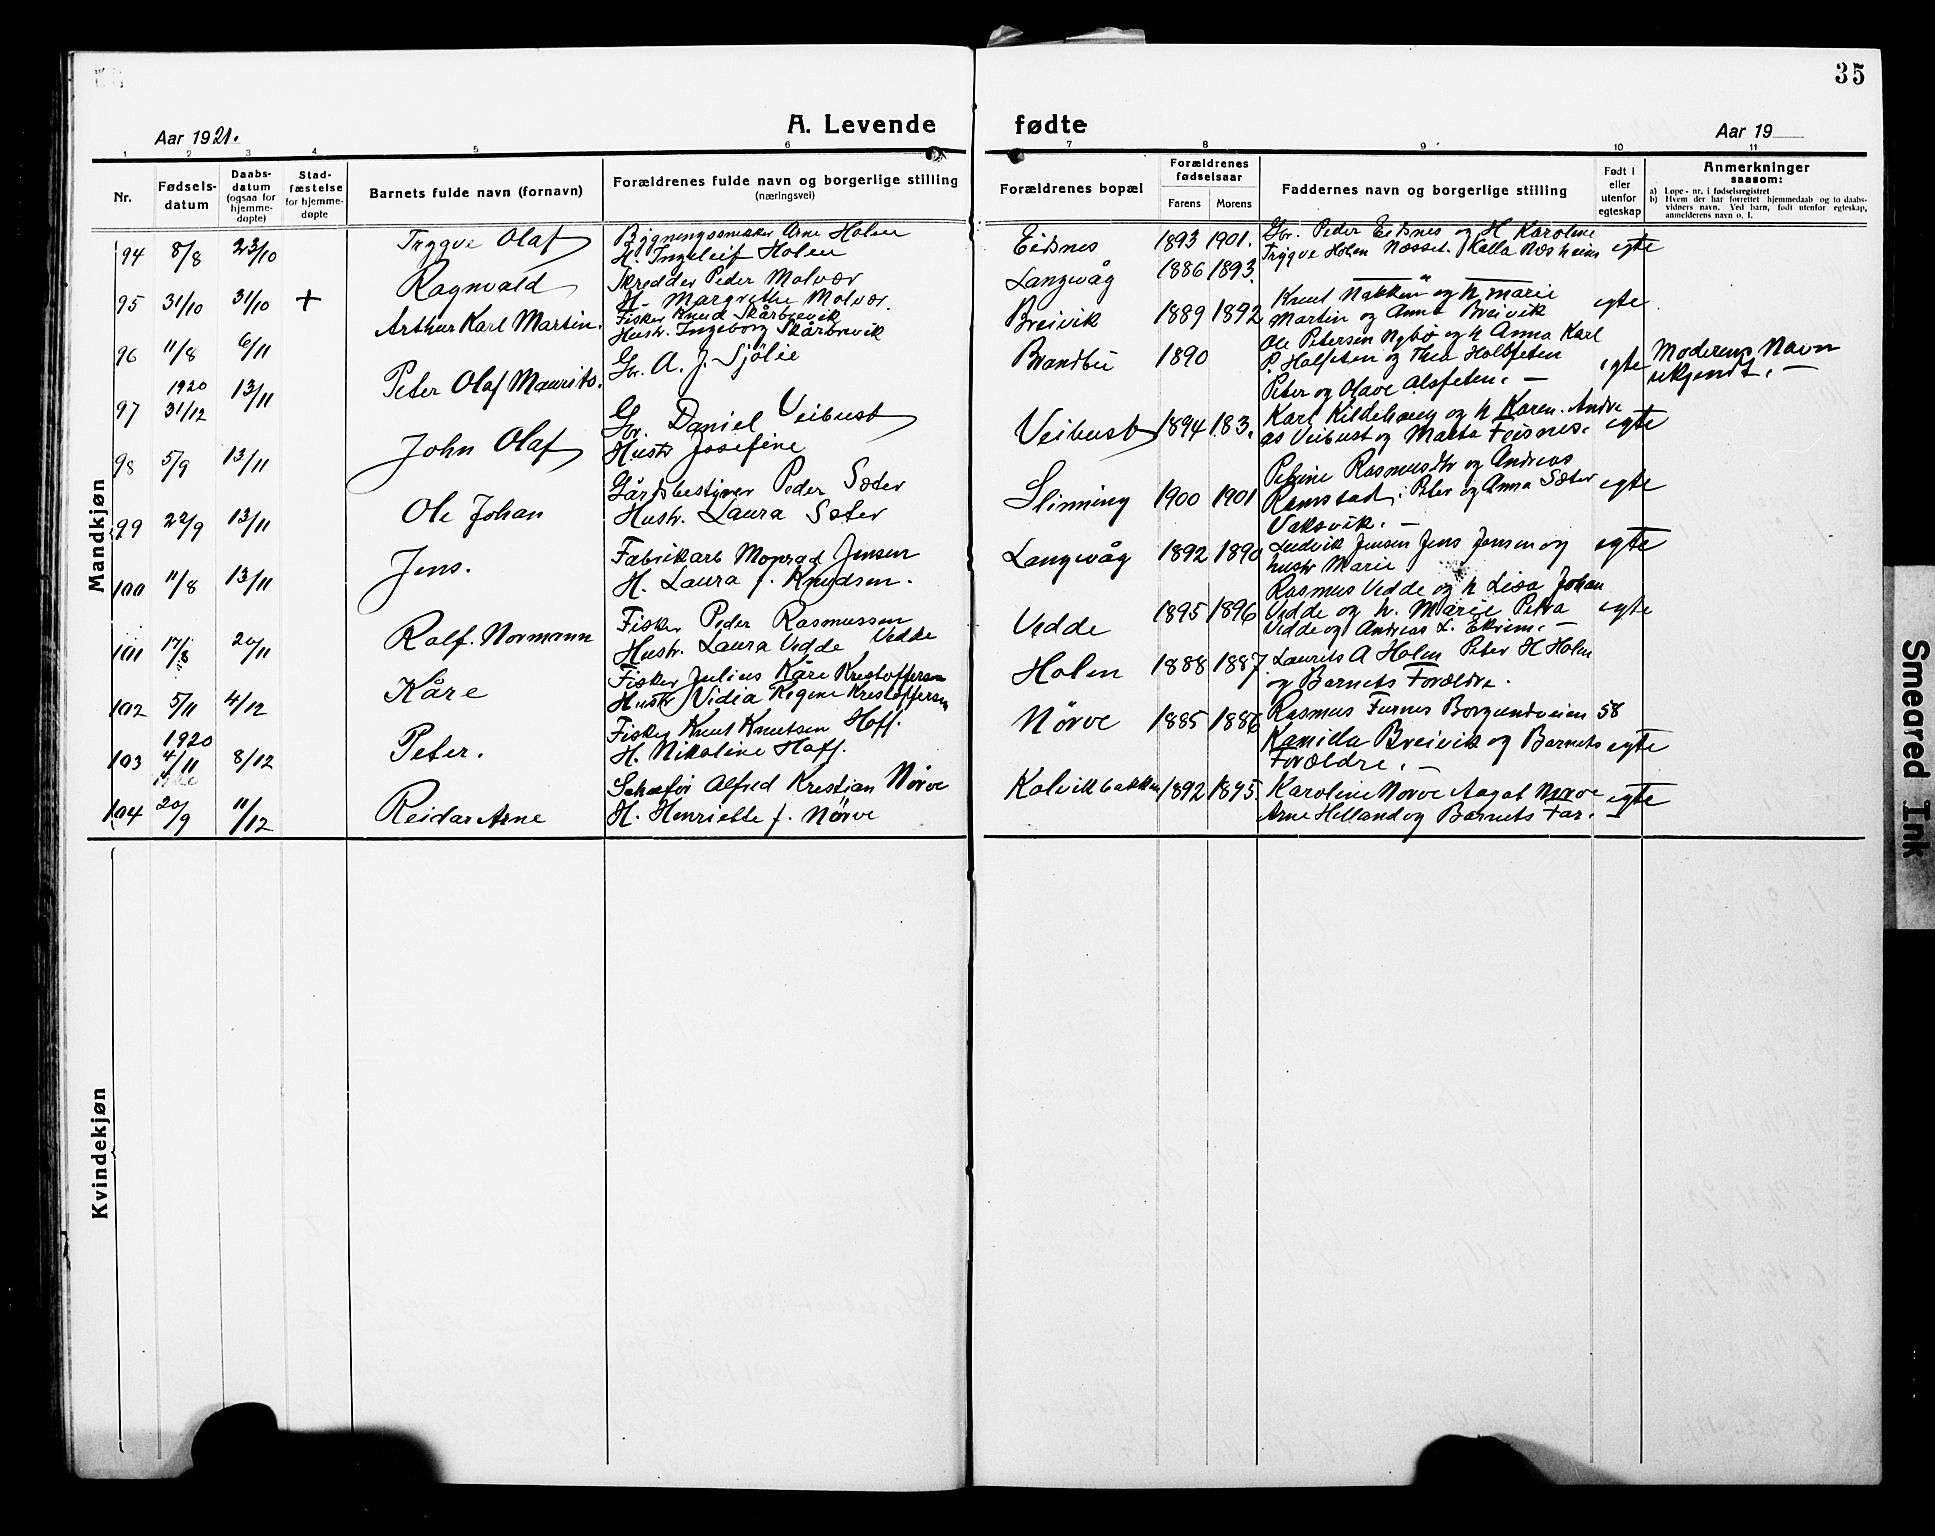 35
A. Levende
fødte
Aar 1921.
Aar 19
1 2 3 4 5 6 7 8 9 10 11
Nr.
Fødsels-
datum
Daabs-
datum
(ogsaa for
hjemme-
døpte)
Stad-
fæstelse
for hjemme-
døpte
Barnets fulde navn (fornavn)
Forældrenes fulde navn og borgerlige stilling
(næringsvei)
Forældrenes bopæl
Forældrenes
fødselsaar
Farens Morens
Faddernes navn og borgerlige stilling
Født i
eller
utenfor
egteskap
Anmerkninger
saasom:
a) Løpe-nr. i fødselsregistret
b) Hvem der har forrettet hjemmedaab og to daabs-
vidners navn. Ved barn, født utenfor egteskap,
anmelderens navn o. l.
Mandkjøn
94 8/8 23/10 Trygve Olaf
Bygningssnekker Arne Holen
H. Ingeleif Holen
Eidsnes 1893 1901.
Gbr. Peder Eidsnes og H Karoline
Trygve Holen Næsset. Kalla Næsheim egte
95 31/10 31/10 + Ragnvald
Skredder Peder Molvær
H. Margrethe Molvær.
Langevåg 1886 1893.
egte
96 11/8 6/11 Arthur Karl Martin.
Fisker Knud Skårbrevik
Hustr. Ingeborg Skårbrevik
Breivik 1889 1892
Knut Nakken og h marie
Martin og Anna Breivik
97 1920 31/12 13/11 Peter Olaf Maurits.
Gbr. A. J. Sjölie
Brandbu 1890
Ole Petersen Nybø og h Anna Karl
P. Holfeten og Thea Holbfeten
Peter og Olave Alsfeten. —
egte
Moderens Navn
ukjendt. —
98 5/9 13/11 John Olaf
Gbr. Daniel Veibust
Hustr Josefine
Veibust 1894 183.
Karl Kildehaug og h Karen. Andre
as Veibust og Marta Feisnes. egte
99 22/9 13/11 Ole Johan
Gårdsbestyrer Peder Sæter
Hustr. Laura Sæter
Slinning 1900 1901
Petrine Rasmusdtr og Andreas
Ramstad; Peter og Anna Sæter
Vaksvik. —
egte
100 11/8 13/11 Jens.
Fabrikarb Monrad Jensen
H. Laura f. Knudsen.
Langevåg 1892 1890
Ludvik Jensen Jens Jensen og
hustr Marie
egte
101 17/8 20/11 Ralf. Normann
Fisker Peder Rasmussen
Hustr. Laura Vedde Vedde
Vedde 1895 1896
Rasmus Vedde og h Lisa Johan
Vedde og h. Marie Petra
Vedde og Andreas L. Ekrem. —
egte
102 5/11 4/12 Kåre
Fisker Julius Kåre Krestoffersen
Hustr Vidia Regine Krestoffersen
Holen 1888 1887
Laurits A Holen Peter H Holen
og Barnets Forældre.
103 1920 4/11 8/12 Peter.
Fisker Knut Knutsen Hoff.
H. Nikoline Hoff.
Nørve 1885 1886
Rasmus Furnes Borgundveien 58
Kamilla Breivik og Barnets
Forældre. —
egte
104 20/9 11/12 Reidar Arne
Schæfør Alfred Krestian Nörve
H. Henriette f. Nörve
Kolvikbakken 1892 1895.
Karoline Nørve Aagot Nørve
Arne Helland og Barnets Far. —
egte
Kvindekjøn
Smeared Ink